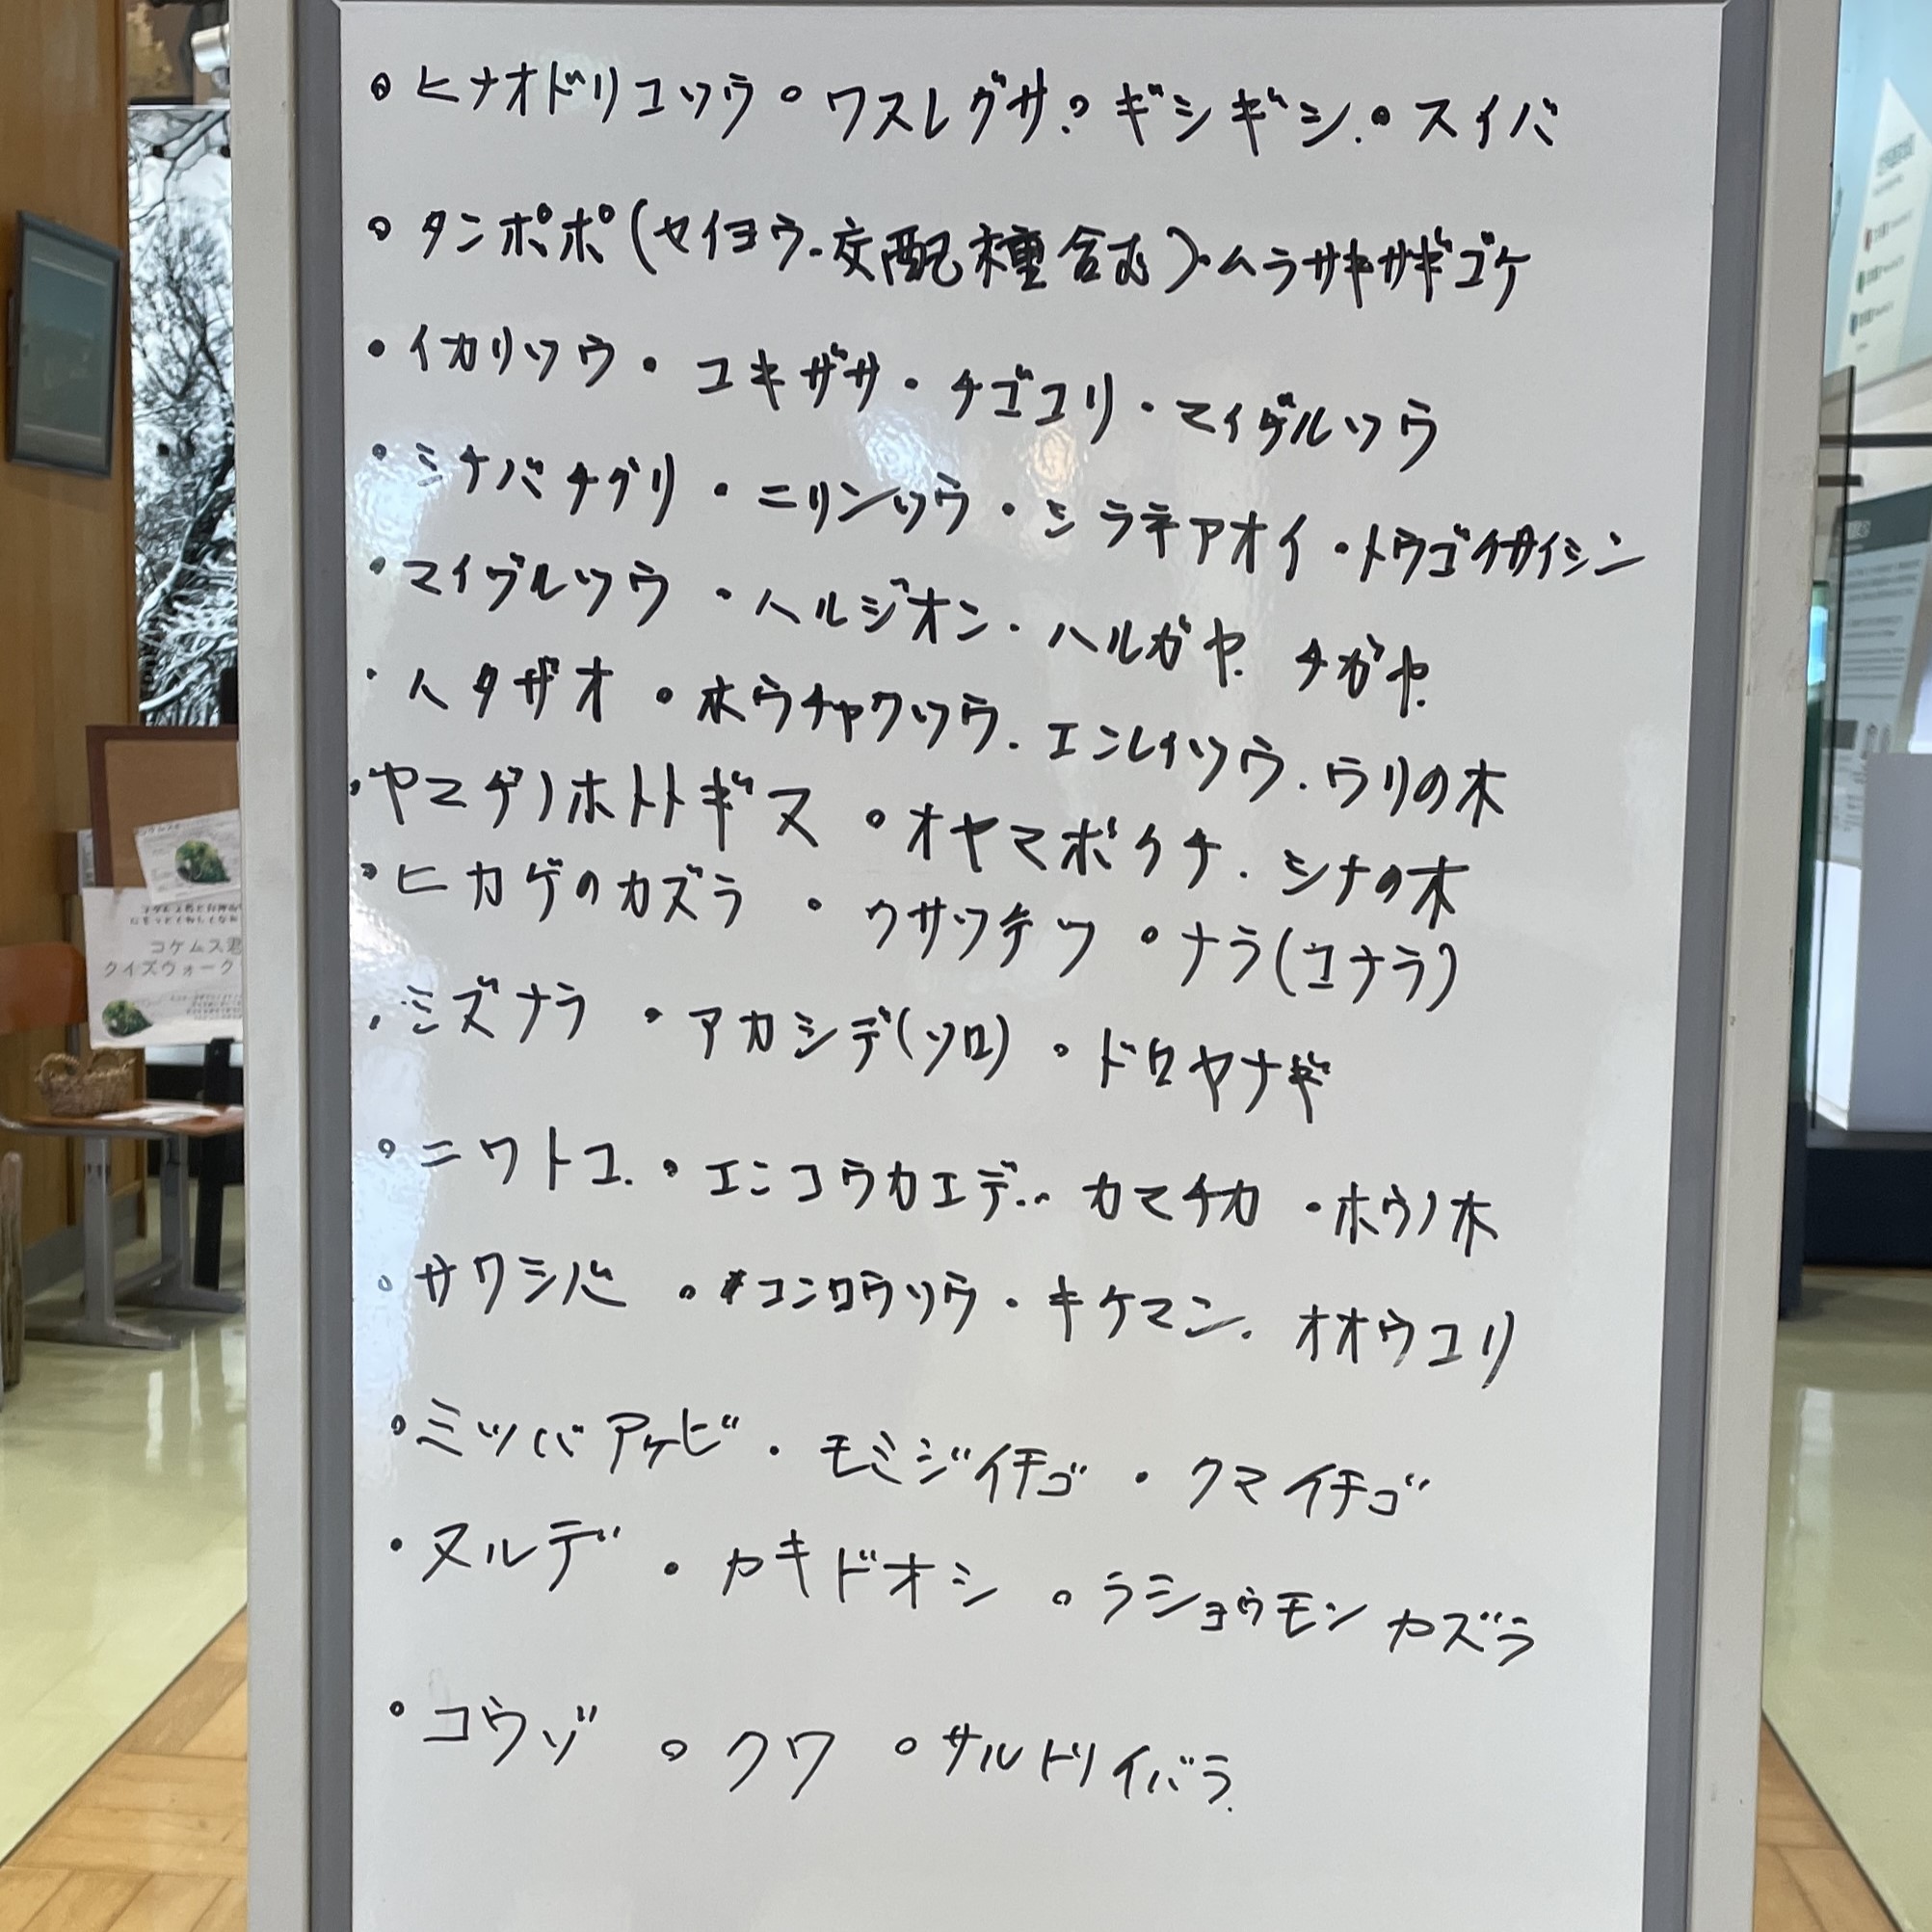 ・ヒナオドリコソウ・ワスレグサ・ギシギシ・スイバ
・タンポポ(セイヨウ・交配種含む)・ムラサキサギゴケ
・イカリソウ・ユキザサ・チゴユリ・マイヅルソウ
・ミチバチグリ・ニリンソウ・シラネアオイ・トウゴクサイシン
・マイヅルソウ・ハルジオン・ハルガヤ・チガヤ
・ハタザオ・ホウチャクソウ・エンレイソウ・ウリの木
・ヤマヂノホトトギス・オヤマボクチ・シナの木
・ヒカゲのカズラ・クサソテツ・ナラ(コナラ)
・ミズナラ・アカシデ(ソロ)・ドロヤナギ
・ニワトコ・エンコウカエデ・カマチカ・ホウノ木
・サワシバ・コンロウソウ・キケマン・オオウユリ
・ミツバアケビ・モミジイチゴ・クマイチゴ
・ヌルデ・カキドオシ・ラショウモンカズラ
・コウゾ・クワ・サルトリイバラ
コケムス君
クイズウォーク